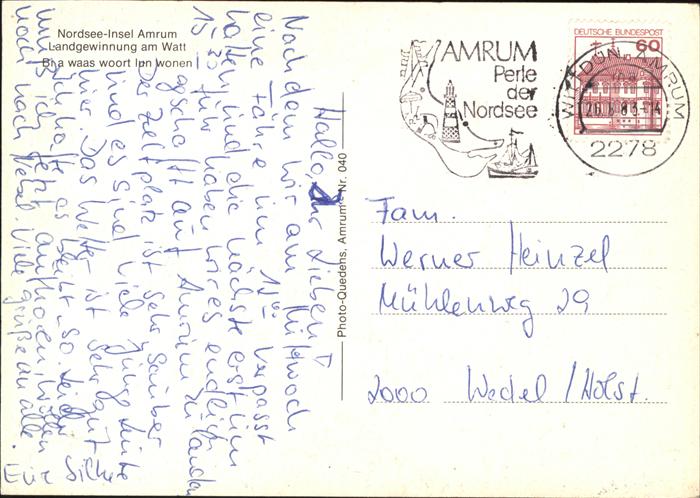 Nordsee-Insel Amrum
Landgewinnung am Watt
Bi a waas woort Inn wonen
Hallo, Ihr Lieben!
Nachdem wir am Mittwoch
eine Fähre um verpasst
hatten, und die nächste erst um
15 Uhr haben wir es endlich
geschafft auf Amrum zu landen
Der Zeltplatz ist sehr sauber
und es sind viele junge Leute
hier. Das Wetter ist sehr gut
ich hoffe es bleibt so. Leider
muß ich jetzt aufhören, wollen
noch nach Nebel. Viele grüße an allen
Eure Silke
Photo-Quedens, Amrum Nr. 040
AMRUM
Perle
der
Nordsee
DEUTSCHE BUNDESPOST
60
WITTDÜN, AMRUM
2278
Fam.
Werner Heinzel
Mühlenweg 29
2000 Wedel / Holst.